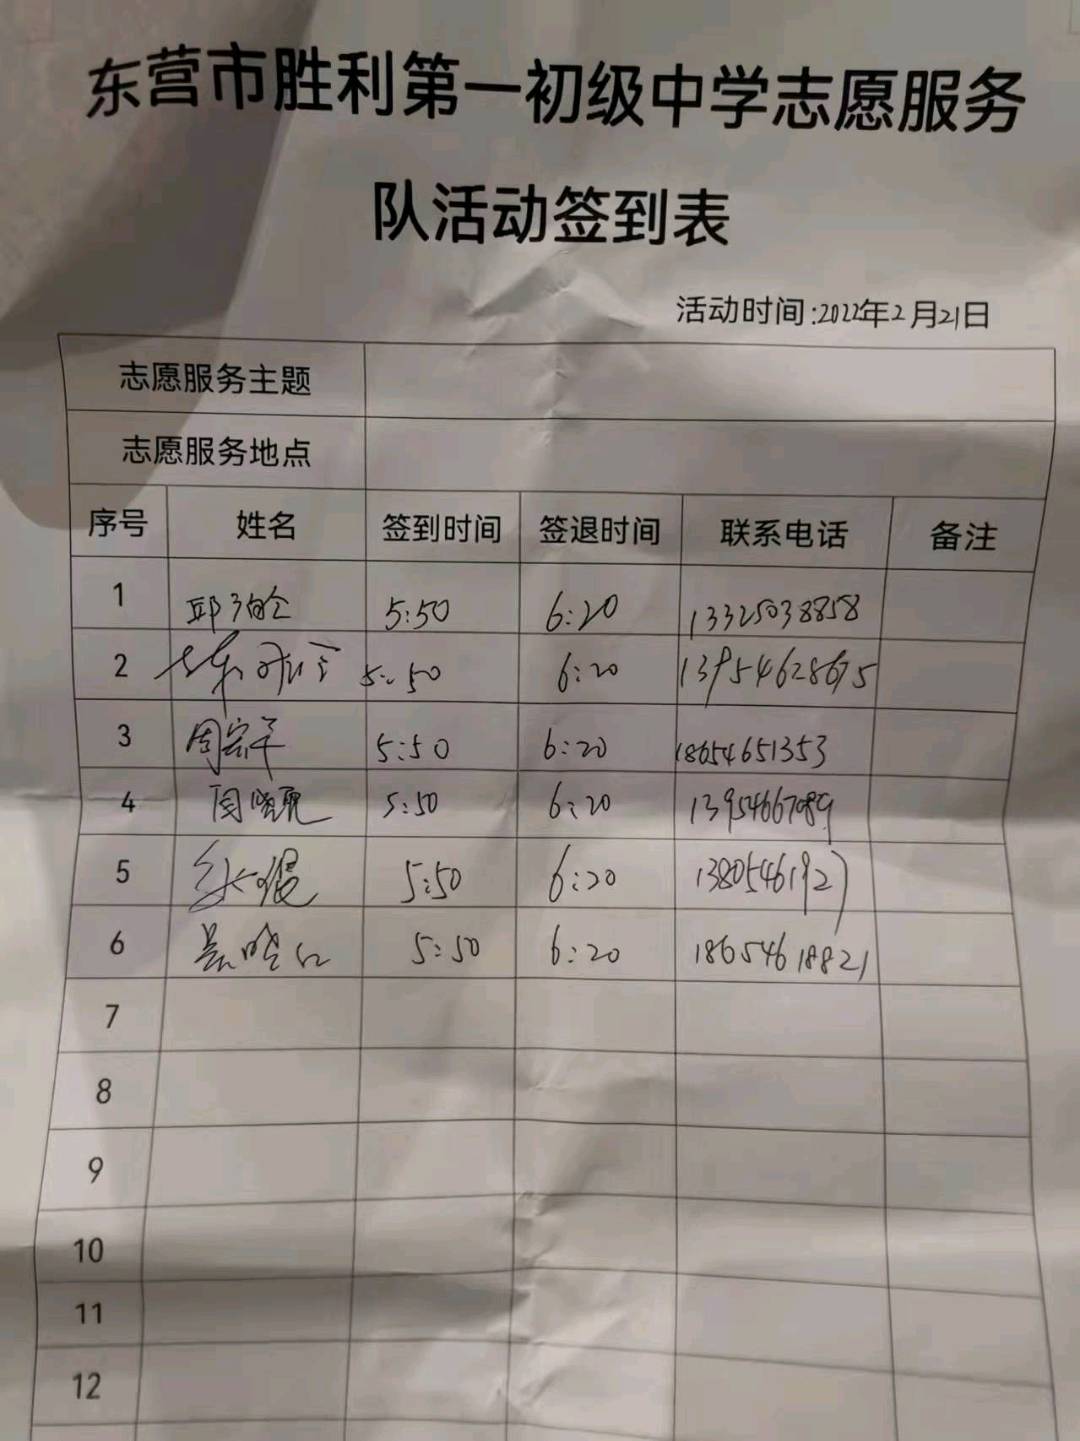 东营市胜利第一初级中学志愿服务
队活动签到表
活动时间:2022年2月21日
志愿服务主题
志愿服务地点
序号 姓名 签到时间 签退时间 联系电话 备注
1 邱 5:50 6:20 13325038858
2 5:50 6:20 13954628675
3 周宏平 5:50 6:20 18654651353
4 周晓 5:50 6:20 13954667089
5 5:50 6:20 13805461927
6 吴晓红 5:50 6:20 18654618821
7
8
9
10
11
12